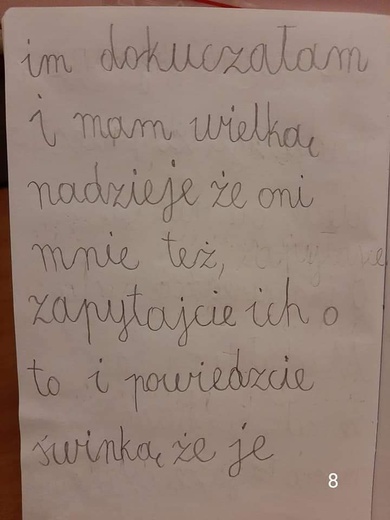 im dokuczałam
i mam wielką
nadzieje że oni
mnie też,
zapytajcie ich o
to i powiedzcie
świnką że je
8